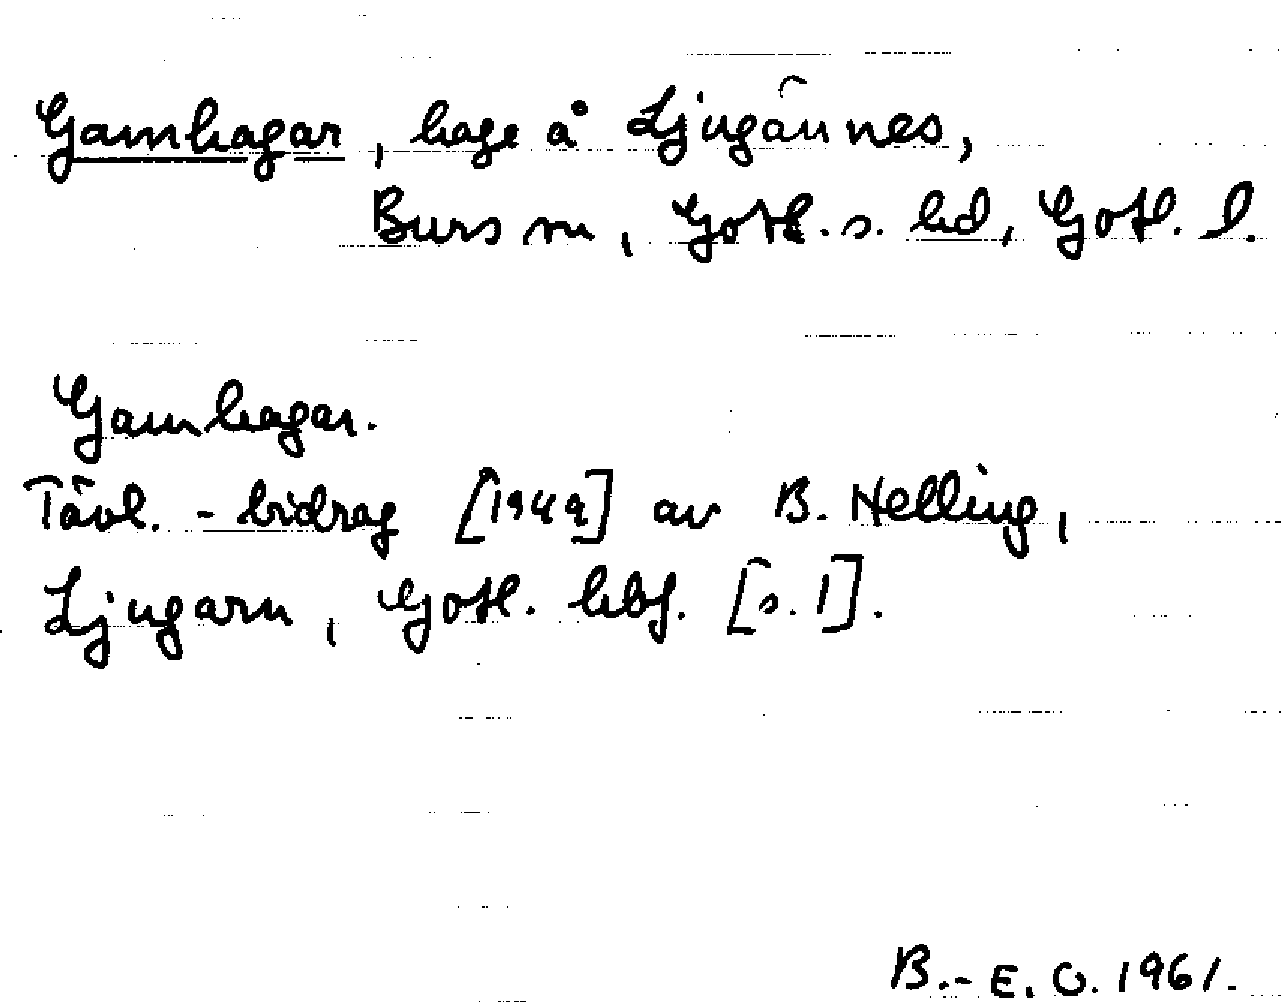 Gamhagar, hage å Ljugännes,
Burs sn, Gotl. s. hd, Gotl. l.
Gamhagar.
Tävl. - bidrag [1949] av B. Nelling,
Ljugarn, Gotl. hbf. [s. 1].
B.-E. O. 1961.